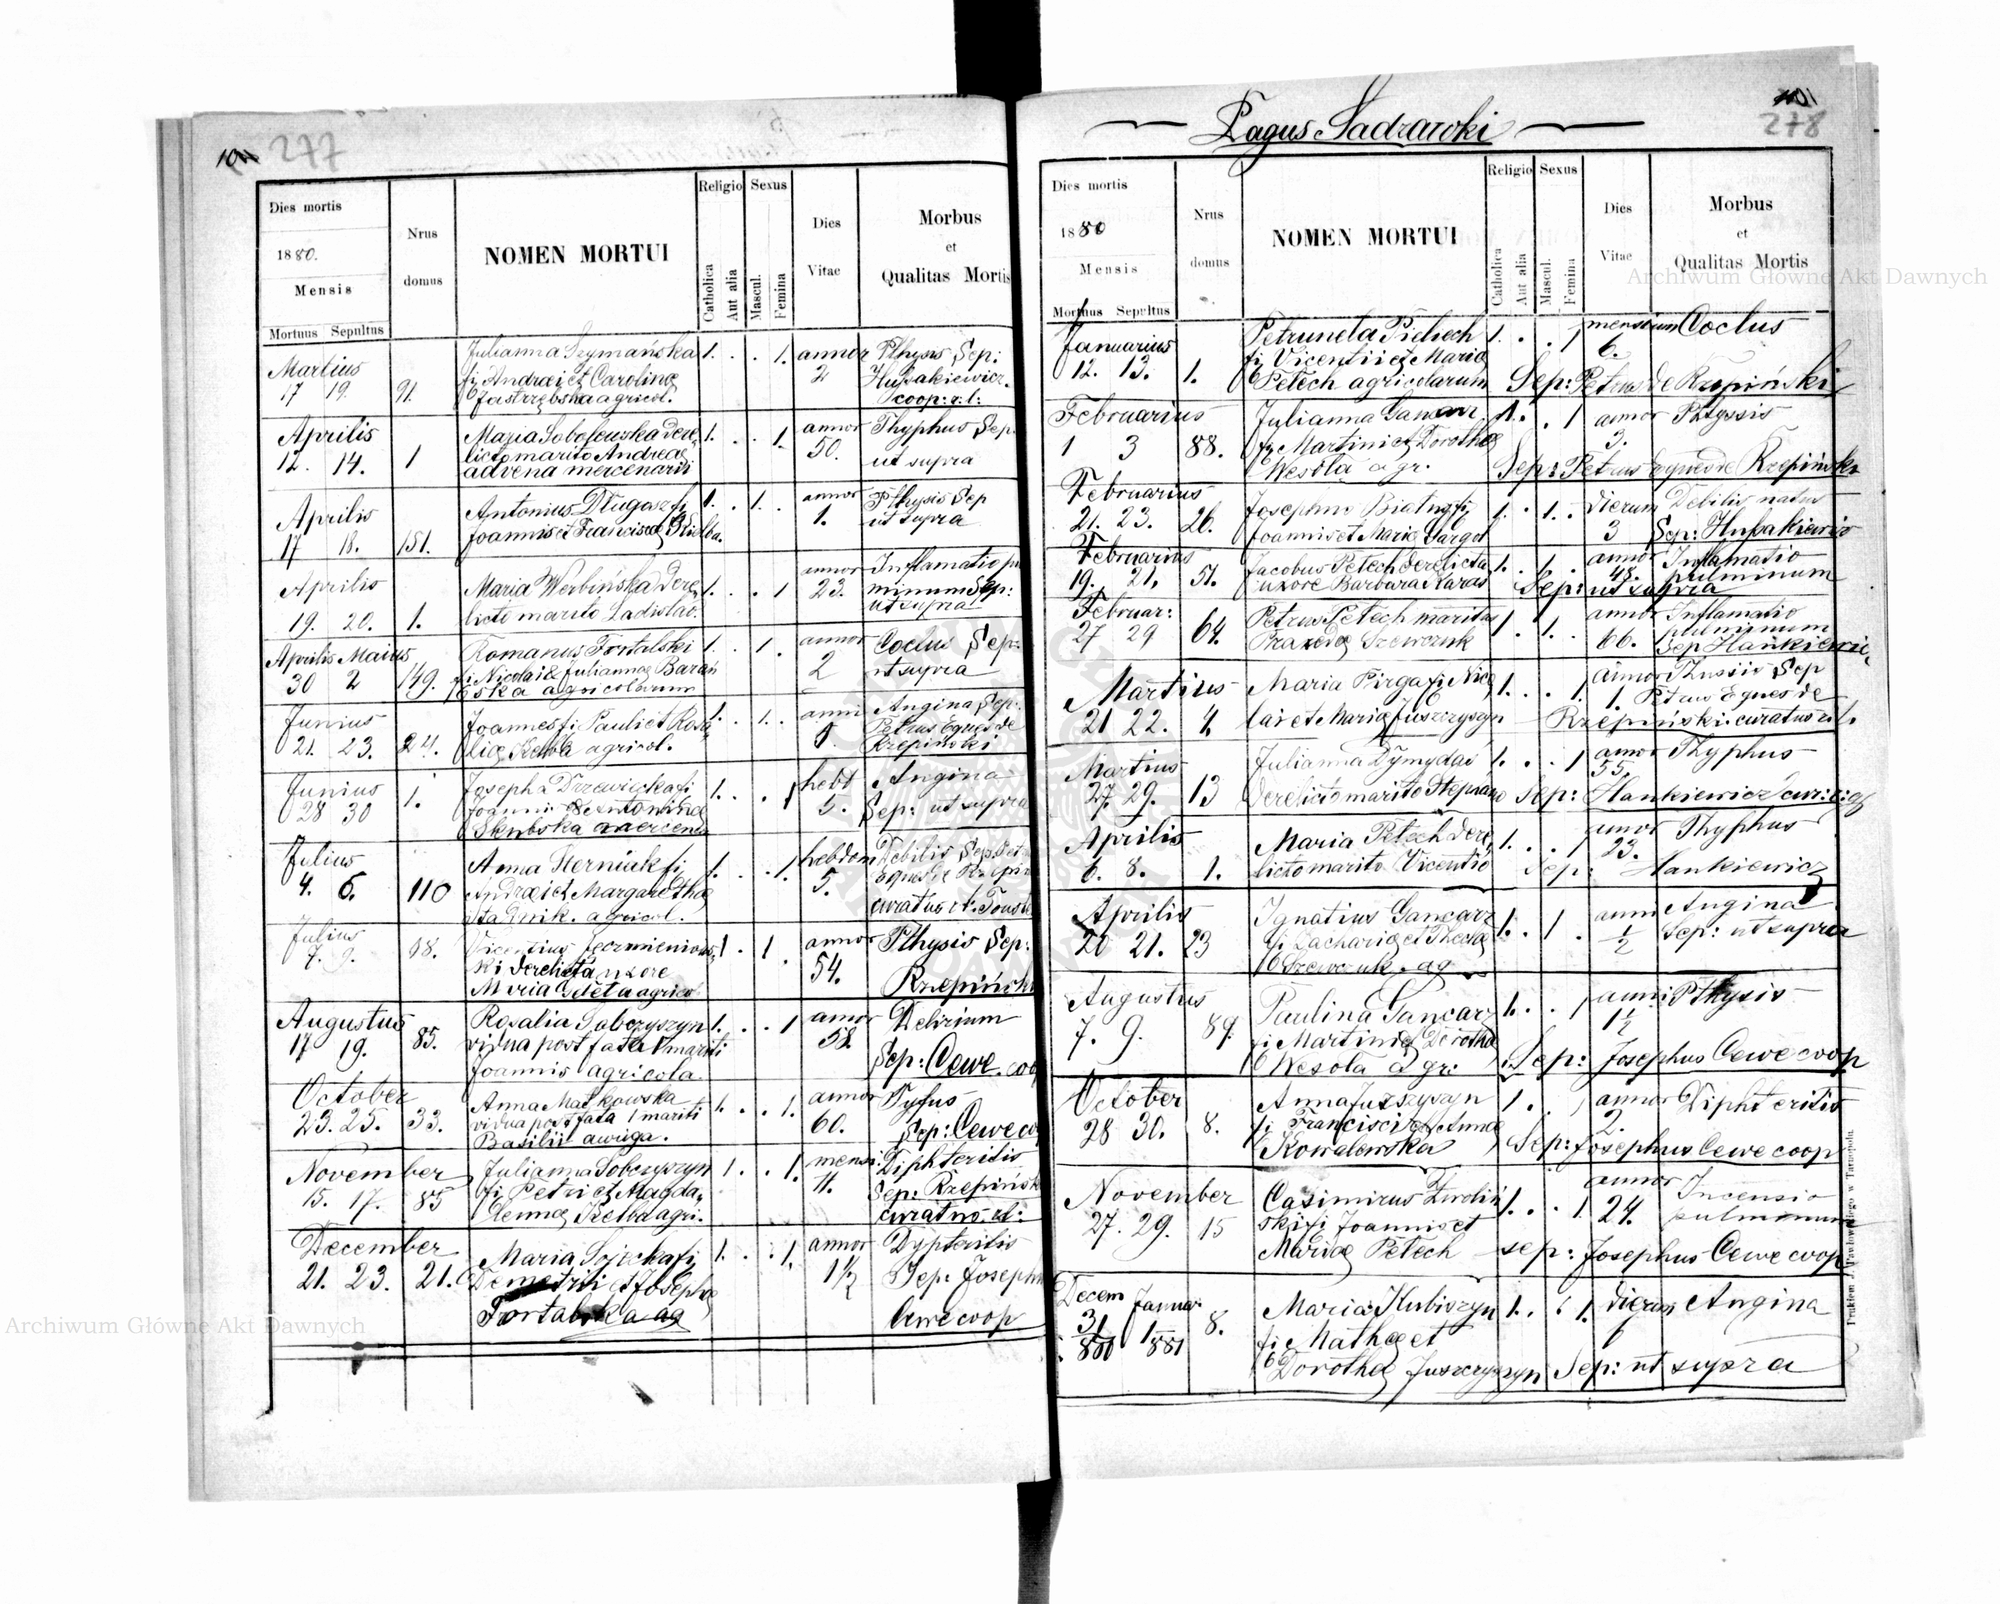 277
Dies mortis
1880.
Mensis
Mortuus Sepultus
Nrus
domus
NOMEN MORTUI
Religio
Catholica
Aut alia
Sexus
Mascul.
Femina
Dies
Vitae
Morbus
et
Qualitas Mortis
Martius
17 19. 91.
Julianna Szymańska
fi Andreæ et Carolinæ
Jastrzębska agricol.
1. . . 1.
annor
2
Pthysis Sep:
coop: r. l:
Aprilis
12. 14. 1
Maria Sobolewska dere
licto marito Andrea
advena mercenarii
1. . . 1.
annor
50.
Thyphus Sep.
ut supra
Aprilis
17 18. 151.
Antonius Długosz fi
Joannis et Franciscæ
1. . 1. .
annor
1.
Pthysis Sep
ut supra
Aprilis
19. 20. 1.
Maria Werbińska dere
licto marito Ladislao.
1. . . 1
annor
23.
Inflamatio
Sep:
ut supra
Aprilis Maius
30 2 149.
Romanus Trotalski
fi Nicolai & Juliannæ Barań
ska agricolarum
1. . 1 .
annor
2
Coclus Sep:
ut supra
Junius
21. 23. 24.
Joannes fi Pauli et Rosa
liæ agricol.
1. . 1. .
anni
1.
Angina Sep:
Petrus Eques de
Rzepiński
Junius
28 30 1.
Josepha Drzewicka fi
Joannis & Antoninæ
Skubska mercena
1. . . 1
hebt
5.
Angina
Sep: ut supra
Julius
4. 6. 110
Anna Herniak fi
Andreæ et Margarethæ
Stadnik. agricol.
1. . . 1.
hebdom
5.
Debilis Sep: Petr
Eques de Rzepiń
curatus
Julius
7. 9. 98.
Vicentius
ki derelicta uxore
Maria agricol
1 . 1 .
annor
54.
Pthysis Sep:
Rzepińsk
Augustus
17 19. 85.
Rosalia Sobczyszyn
vidua post fata 1 mariti
Joannis agricola.
1. . . 1
annor
58.
Delirium
Sep: Cewe. coop
October
23. 25. 33.
Anna Małkowska
vidua post fata 1 mariti
Basilii awuga.
1. . . 1.
annor
60.
Tyfus
Sep: Cewe co
November
15. 17. 85
Julianna Sobczyszyn
fi Petri et Magda,
lennæ Kełba agri.
1. . . 1.
mensi:
11.
Diphteritis
Sep: Rzepińsk
curatus. r. l:
December
21. 23. 21.
Maria Sojecka fi
Demetrii et Josephæ
Trotalska ag
1. . . 1.
annor
1 1/2
Dypteritis
Sep: Josephu
Cewe coop
Pagus Sadzawki
101
278
Dies mortis
1880
Mensis
Mortuus Sepultus
Nrus
domus
NOMEN MORTUI
Religio
Catholica
Aut alia
Sexus
Mascul.
Femina
Dies
Vitae
Morbus
et
Qualitas Mortis
Januarius
12. 13. 1.
Petruneta Pietech
fi Vicentii et Mariæ
Petech agricolarum
1. . . 1
mensium
6.
Coclus
Sep: Petrus de Rzepiński
Februarius
1 3 88.
Julianna Gancarz
fi Martini et Dorotheæ
Wesoła agr.
1. . . 1
annor
3.
Pthyssis
Sep: Petrus Eques de Rzepiński
Februarius
21. 23. 26.
Josephus Białuy fi
Joannis et Mariæ Gargol
1. . 1. .
dierum
3
Debilis natus
Sep:
Februarius
19. 21. 51.
Jacobus Petech derelicta
uxore Barbara Naras
1. . 1.
annor
48.
Inflamatio
pulminum
Sep: ut supra
Februar:
27 29 64.
Petrus Petech maritus
Praxedæ Szewczuk
1 . 1. .
annor
66.
Inflamatio
pulminum
Sep Hankiewicz
Martius
21 22. 4.
Maria Pirga fi Nico
lai et Mariæ Juszczyszyn
1. . . 1.
annor
1.
Sep
Petrus Eques de
Rzepiński. curatus r. l.
Martius
27. 29. 13
Julianna Dymydas
derelicto marito Stephano
1. . . 1
annor
55.
Thyphus
Sep: Hankiewicz cur: r: g
Aprilis
6. 8. 1.
Maria Petech dere,
licto marito Vicentio
1. . . 1
annor
23.
Thyphus
Sep: Hankiewicz
Aprilis
20 21. 23
Ignatius Gancarz
fi Zachariæ et Theclæ
Szewczuk. ag
1. . 1 .
anni
1/2
Angina
Sep: ut supra
Augustus
7. 9. 89.
Paulina Gancarz
fi Martini & Dorotheæ
Wesoła agr:
1. . . 1
anni
1 1/2
Pthysis
Sep: Josephus Cewe coop
October
28 30. 8.
Anna Juszczyszyn
fi Francisci & Annæ
Kowalewska
1. . . 1
annor
2.
Diphteritis
Sep: Josephus Cewe coop
November
27. 29. 15
Casimirus
ski fi Joannis et
Mariæ Petech
1. . . 1.
annor
24.
Incensio
pulminum
sep: Josephus Cewe coop
Decem Januar
31 1
880 881
8.
Maria Hubiszyn
fi Mathæ et
Dorotheæ Juszczyszyn
1. . . 1.
dierum
1
Angina
Sep: ut supra
Drukiem J. Pawłowskiego w Tarnopolu.
Archiwum Główne Akt Dawnych
Archiwum Główne Akt Dawnych